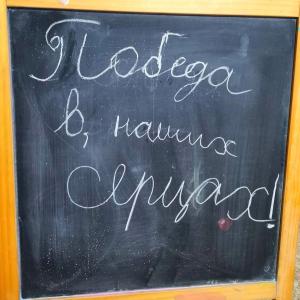 Победа
в, наших
сярцах!